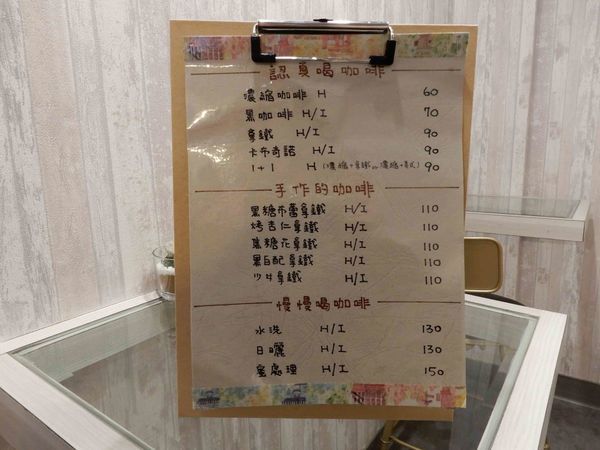 認真喝咖啡
濃縮咖啡 H 60
黑咖啡 H/I 70
拿鐵 H/I 90
卡布奇諾 H/I 90
1+1 H (濃縮+拿鐵 or 濃縮+美式) 90
手作的咖啡
黑糖布蕾拿鐵 H/I 110
烤杏仁拿鐵 H/I 110
蔗糖花拿鐵 H/I 110
黑白配拿鐵 H/I 110
少女拿鐵 H/I 110
慢慢喝咖啡
水洗 H/I 130
日曬 H/I 130
蜜處理 H/I 150